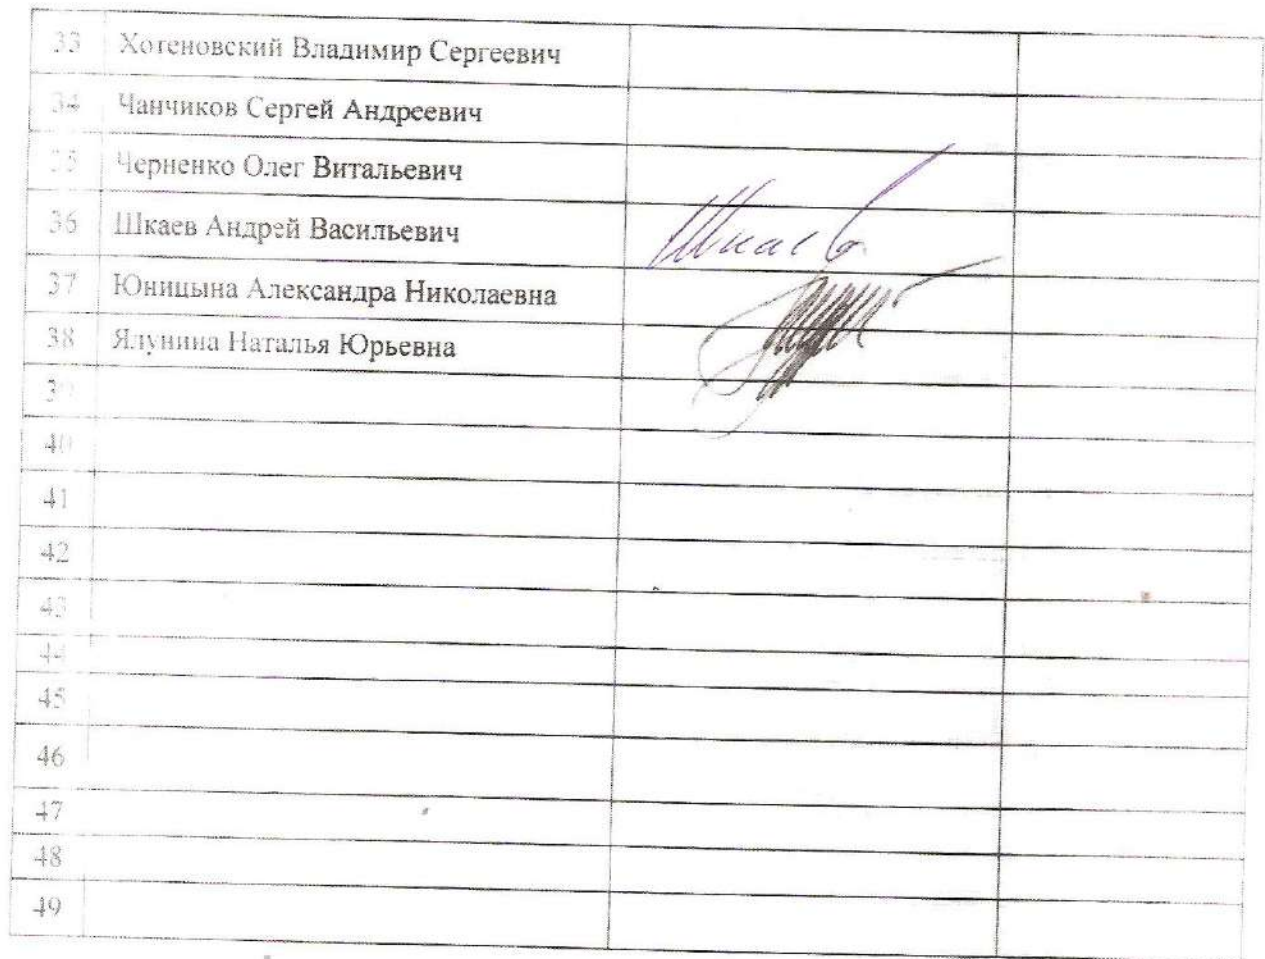 33 Хотеновский Владимир Сергеевич
34 Чанчиков Сергей Андреевич
35 Черненко Олег Витальевич
36 Шкаев Андрей Васильевич Шкаев
37 Юницына Александра Николаевна
38 Ялунина Наталья Юрьевна
39
40
41
42
43
44
45
46
47
48
49